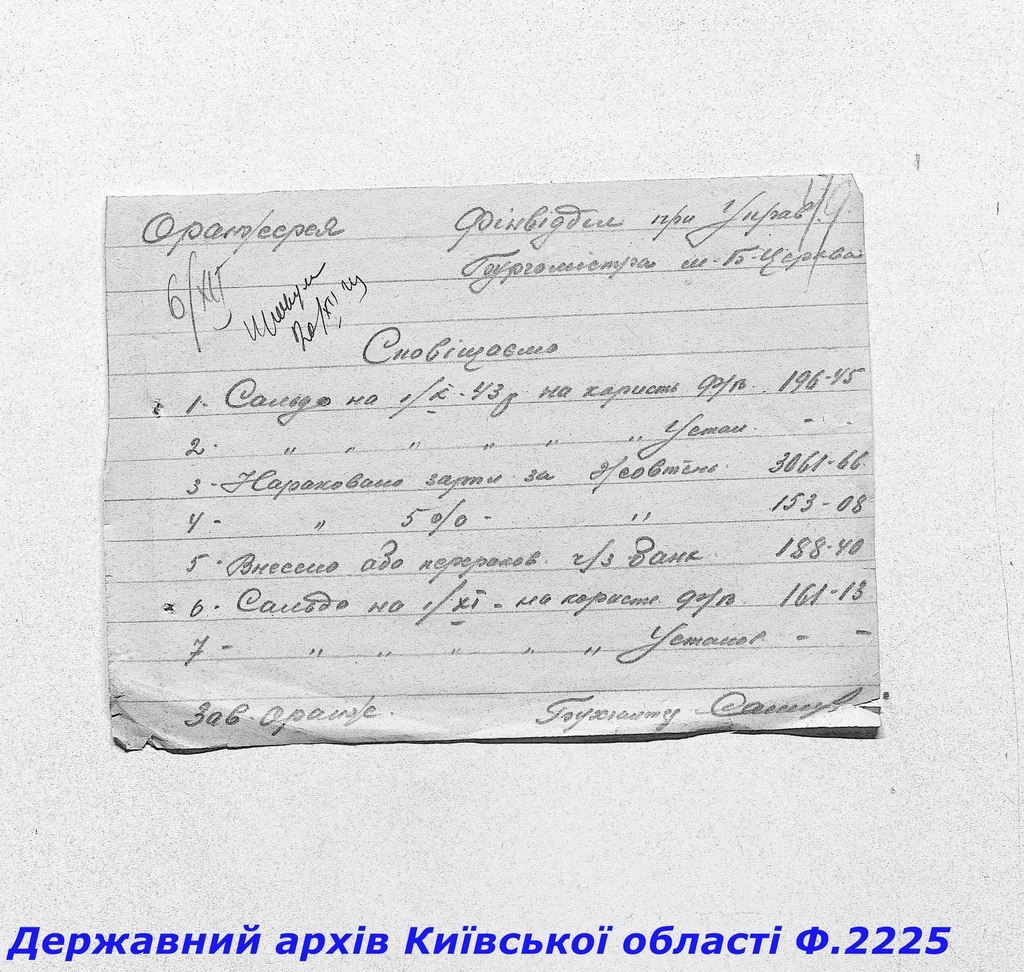 Оранжерея
Фінвідділ при Управ.
Бургомістра м-Б-Церква
6/XI
Сповіщаємо
1- Сальдо на 1/X-43р на користь ф/в. 196-45
2- " " " " " " Устан. - -
3- Нараховано зарпл за жовтень 3061-66
4- " 5% - " 153-08
5- Внесено або перерахов. ч/з банк. 188-40
6- Сальдо на 1/XI - на користь ф/в. 161-13
7- " " " " " Установ - -
Зав. Оранж.
Бухгалтер
Державний архів Київської області Ф.2225